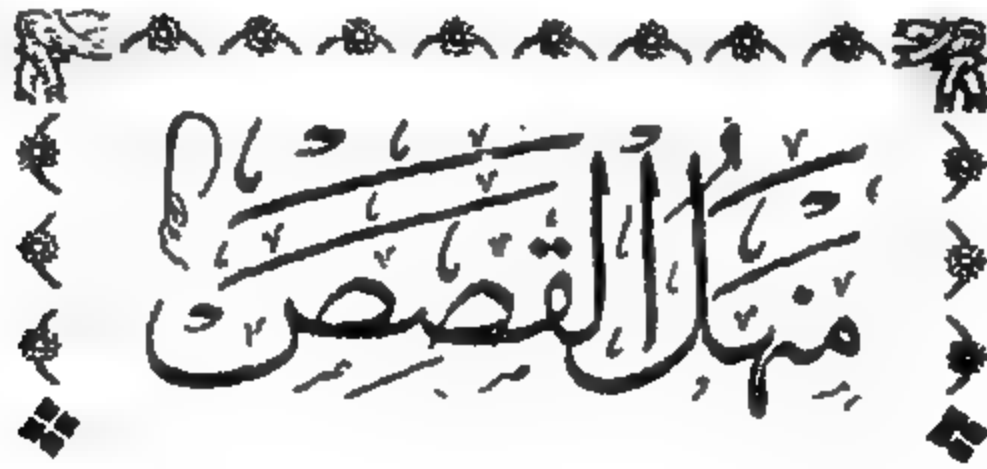 منهل القصص